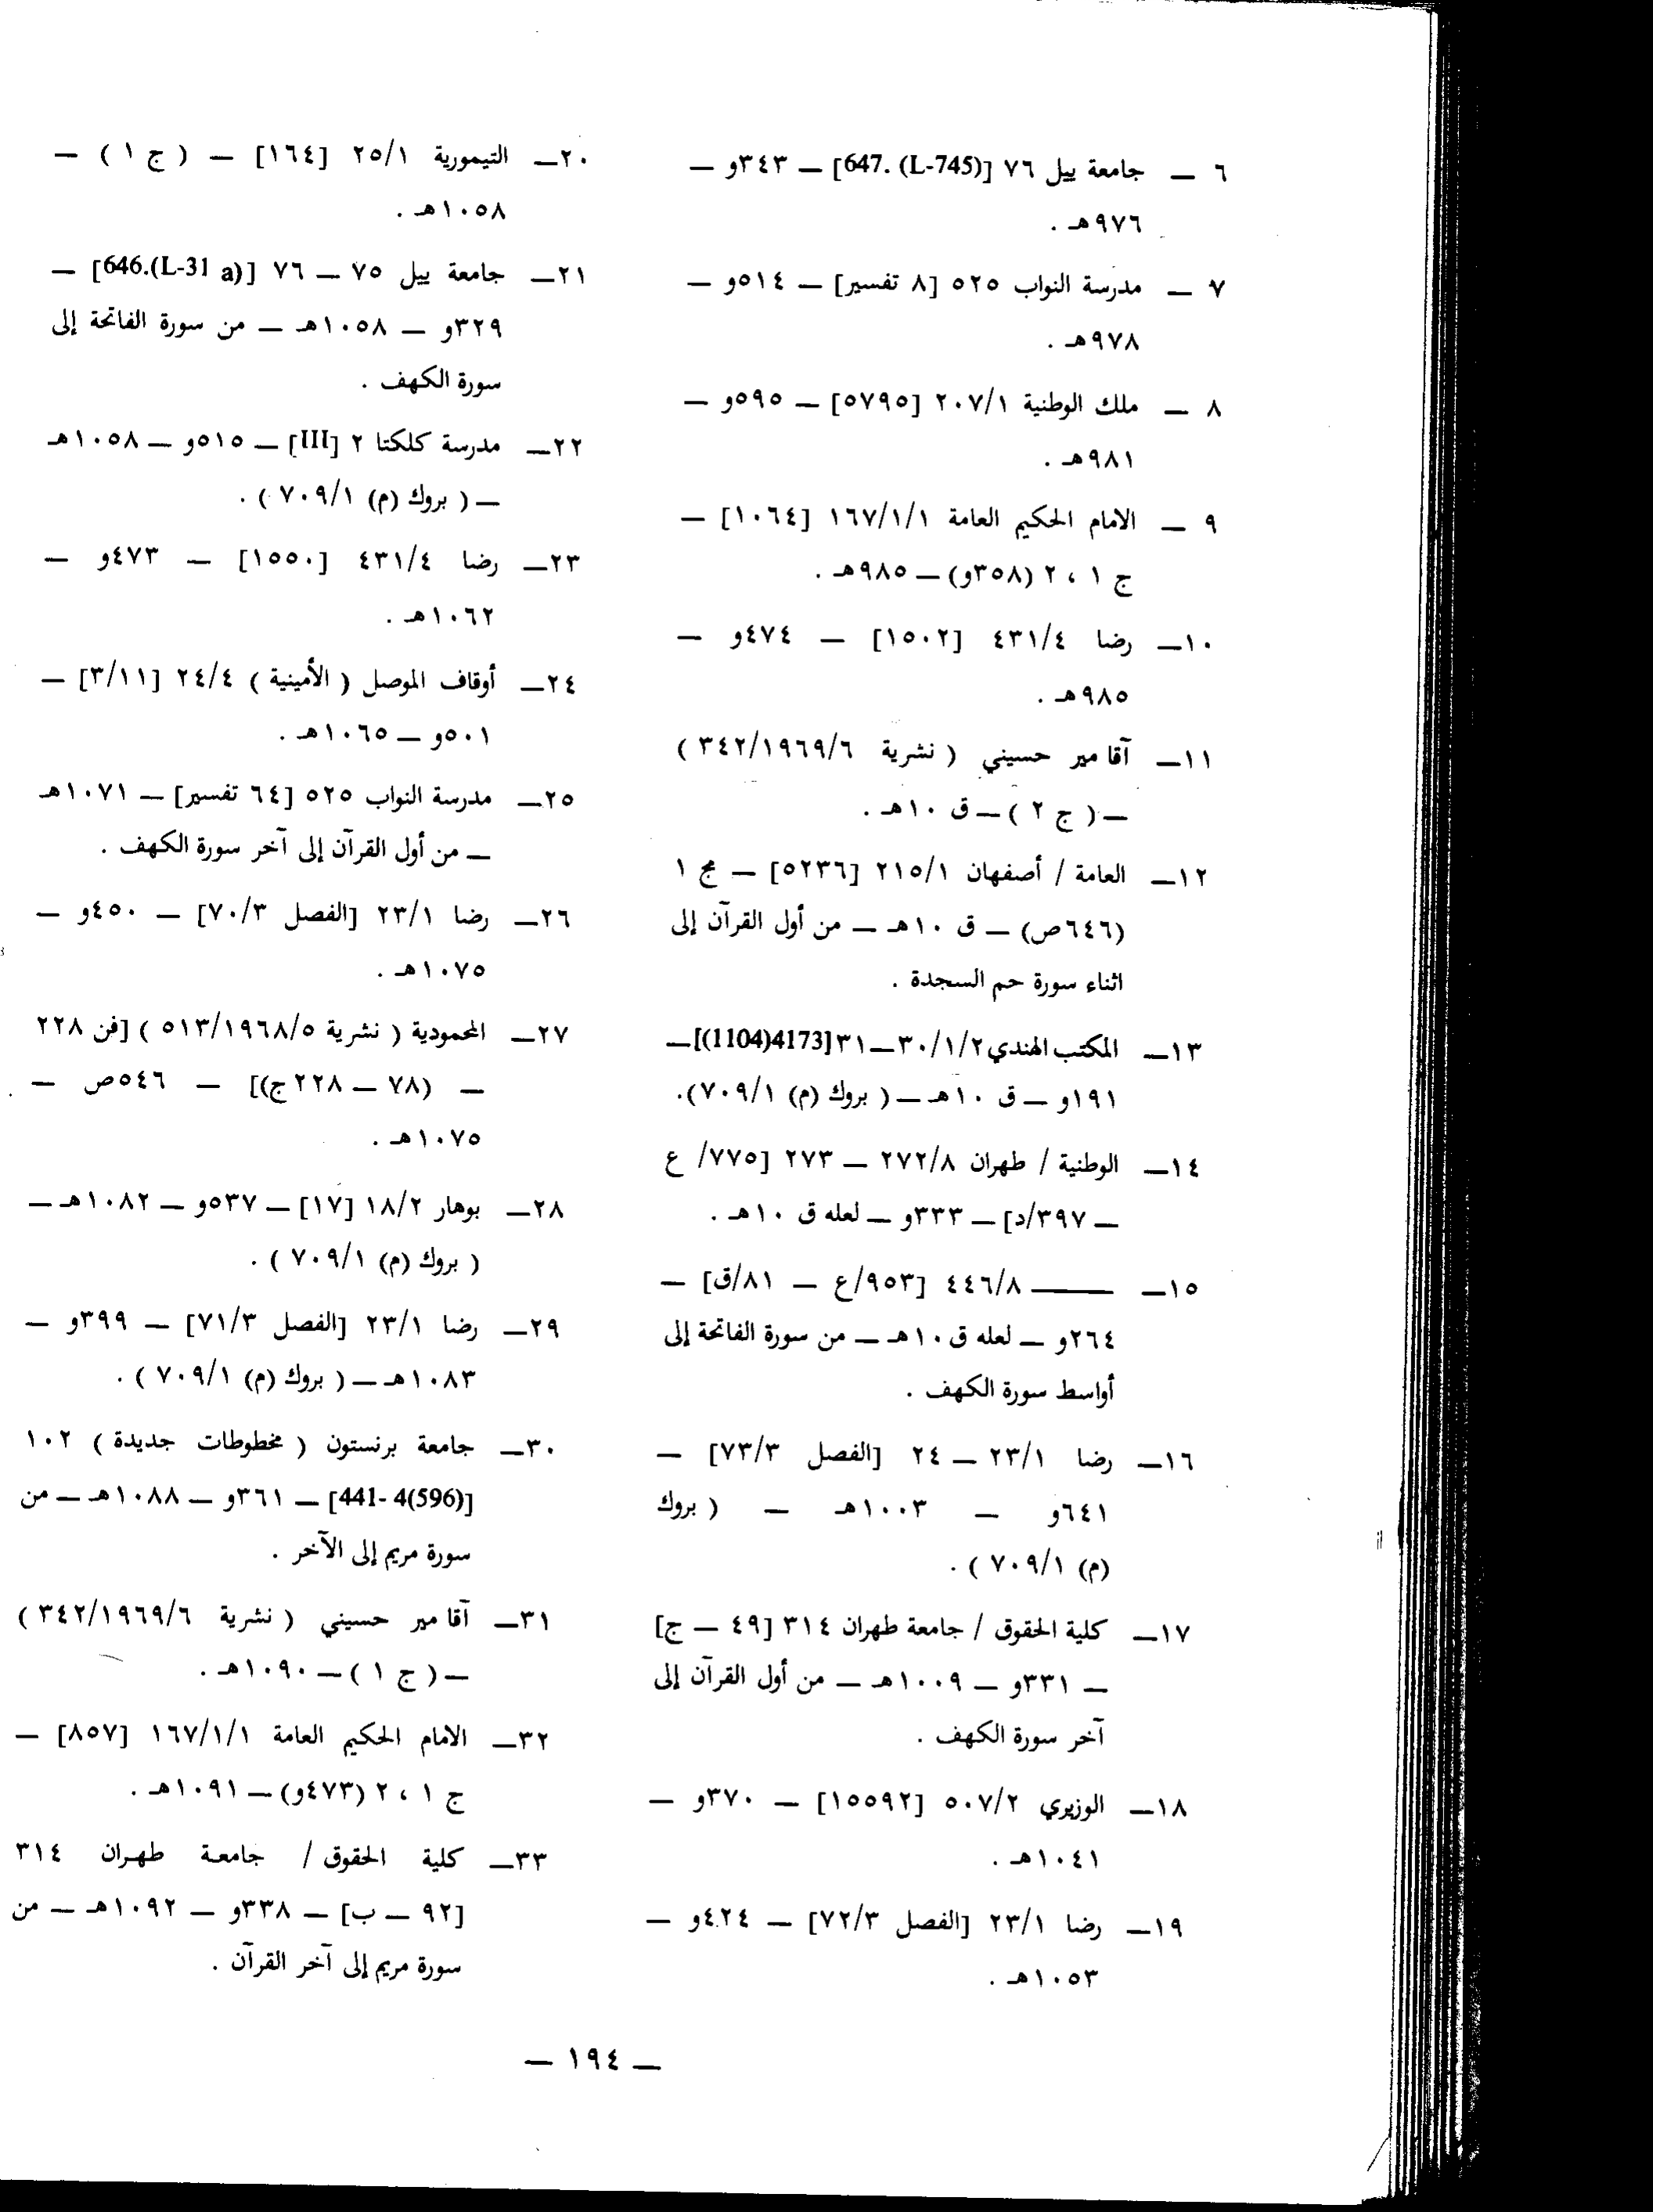 ٦ — جامعة ييل ٧٦ [647. (L-745)] — ٣٤٣و —
٩٧٦هـ .
٧ — مدرسة النواب ٥٢٥ [٨ تفسير] — ٥١٤و —
٩٧٨هـ .
٨ — ملك الوطنية ٢٠٧/١ [٥٧٩٥] — ٥٩٥و —
٩٨١هـ .
٩ — الامام الحكيم العامة ١٦٧/١/١ [١٠٦٤] —
ج ١ ، ٢ (٣٥٨و) — ٩٨٥هـ .
١٠— رضا ٤٣١/٤ [١٥٠٢] — ٤٧٤و —
٩٨٥هـ .
١١— آقا مير حسيني ( نشرية ٣٤٢/١٩٦٩/٦ )
— ( ج ٢ ) — ق ١٠هـ .
١٢— العامة / أصفهان ٢١٥/١ [٥٢٣٦] — مج ١
(٦٤٦ص) — ق ١٠هـ — من أول القرآن إلى
اثناء سورة حم السجدة .
١٣— المكتب الهندي ٣٠/١/٢—٣١ [4173(1104)] —
١٩١و — ق ١٠هـ — ( بروك (م) ٧٠٩/١ ).
١٤— الوطنية / طهران ٢٧٢/٨ — ٢٧٣ [٧٧٥/ ع
— ٣٩٧/د] — ٣٣٣و — لعله ق ١٠هـ .
١٥— ——— ٤٤٦/٨ [٩٥٣/ع — ٨١/ق] —
٢٦٤و — لعله ق ١٠هـ — من سورة الفاتحة إلى
أواسط سورة الكهف .
١٦— رضا ٢٣/١ — ٢٤ [الفصل ٧٣/٣] —
٦٤١و — ١٠٠٣هـ — ( بروك
(م) ٧٠٩/١ ) .
١٧— كلية الحقوق / جامعة طهران ٣١٤ [٤٩ — ج]
— ٣٣١و — ١٠٠٩هـ — من أول القرآن إلى
آخر سورة الكهف .
١٨— الوزيري ٥٠٧/٢ [١٥٥٩٢] — ٣٧٠و —
١٠٤١هـ .
١٩— رضا ٢٣/١ [الفصل ٧٢/٣] — ٤٢٤و —
١٠٥٣هـ .
٢٠— التيمورية ٢٥/١ [١٦٤] — ( ج ١ ) —
١٠٥٨هـ .
٢١— جامعة ييل ٧٥ — ٧٦ [646.(L-31 a)] —
٣٢٩و — ١٠٥٨هـ — من سورة الفاتحة إلى
سورة الكهف .
٢٢— مدرسة كلكتا ٢ [III] — ٥١٥و — ١٠٥٨هـ
— ( بروك (م) ٧٠٩/١ ) .
٢٣— رضا ٤٣١/٤ [١٥٥٠] — ٤٧٣و —
١٠٦٢هـ .
٢٤— أوقاف الموصل ( الأمينية ) ٢٤/٤ [٣/١١] —
٥٠١و — ١٠٦٥هـ .
٢٥— مدرسة النواب ٥٢٥ [٦٤ تفسير] — ١٠٧١هـ
— من أول القرآن إلى آخر سورة الكهف .
٢٦— رضا ٢٣/١ [الفصل ٧٠/٣] — ٤٥٠و —
١٠٧٥هـ .
٢٧— المحمودية ( نشرية ٥١٣/١٩٦٨/٥ ) [فن ٢٢٨
— (٧٨ — ٢٢٨ج)] — ٥٤٦ص —
١٠٧٥هـ .
٢٨— بوهار ١٨/٢ [١٧] — ٥٣٧و — ١٠٨٢هـ —
( بروك (م) ٧٠٩/١ ) .
٢٩— رضا ٢٣/١ [الفصل ٧١/٣] — ٣٩٩و —
١٠٨٣هـ — ( بروك (م) ٧٠٩/١ ) .
٣٠— جامعة برنستون ( مخطوطات جديدة ) ١٠٢
[441- 4(596)] — ٣٦١و — ١٠٨٨هـ — من
سورة مريم إلى الآخر .
٣١— آقا مير حسيني ( نشرية ٣٤٢/١٩٦٩/٦ )
— ( ج ١ ) — ١٠٩٠هـ .
٣٢— الامام الحكيم العامة ١٦٧/١/١ [٨٥٧] —
ج ١ ، ٢ (٤٧٣و) — ١٠٩١هـ .
٣٣— كلية الحقوق / جامعة طهران ٣١٤
[٩٢ — ب] — ٣٣٨و — ١٠٩٢هـ — من
سورة مريم إلى آخر القرآن .
— ١٩٤ —